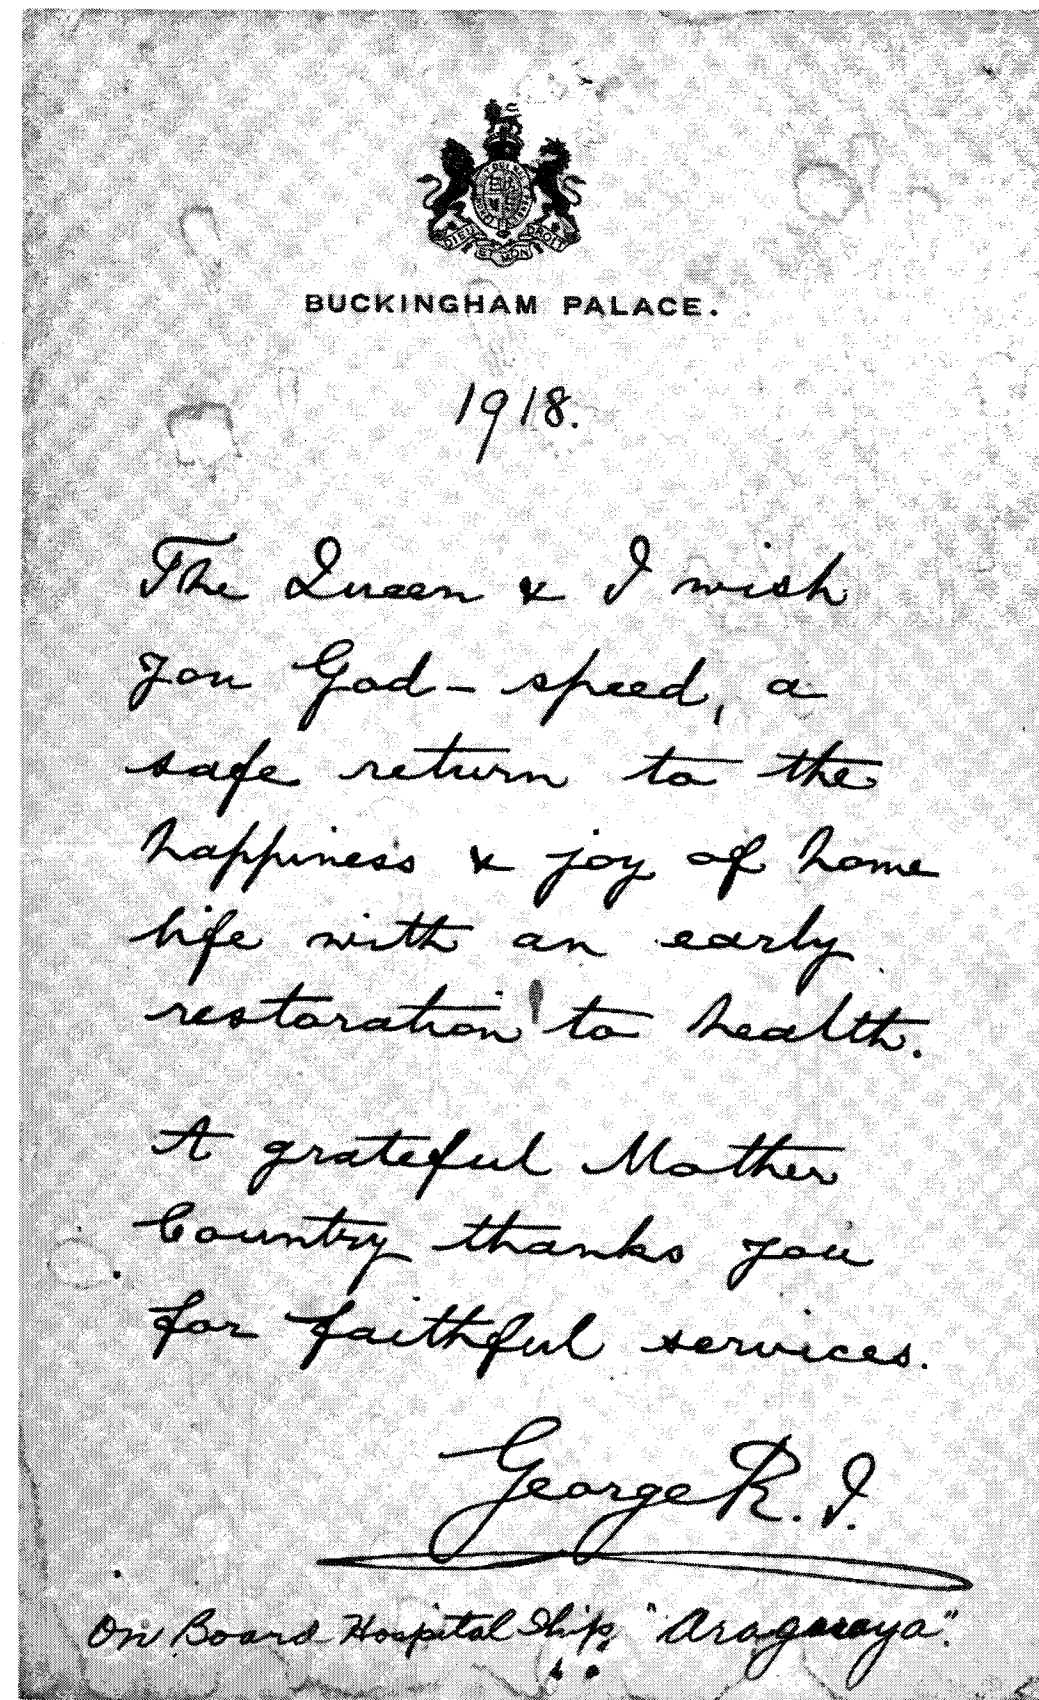 DIEU ET MON DROIT
BUCKINGHAM PALACE.
1918.
The Queen & I wish
you God-speed, a
safe return to the
happiness & joy of home
life with an early
restoration to health.
A grateful Mother
Country thanks you
for faithful services.
George R.I.
On Board Hospital Ship "Araguaya".